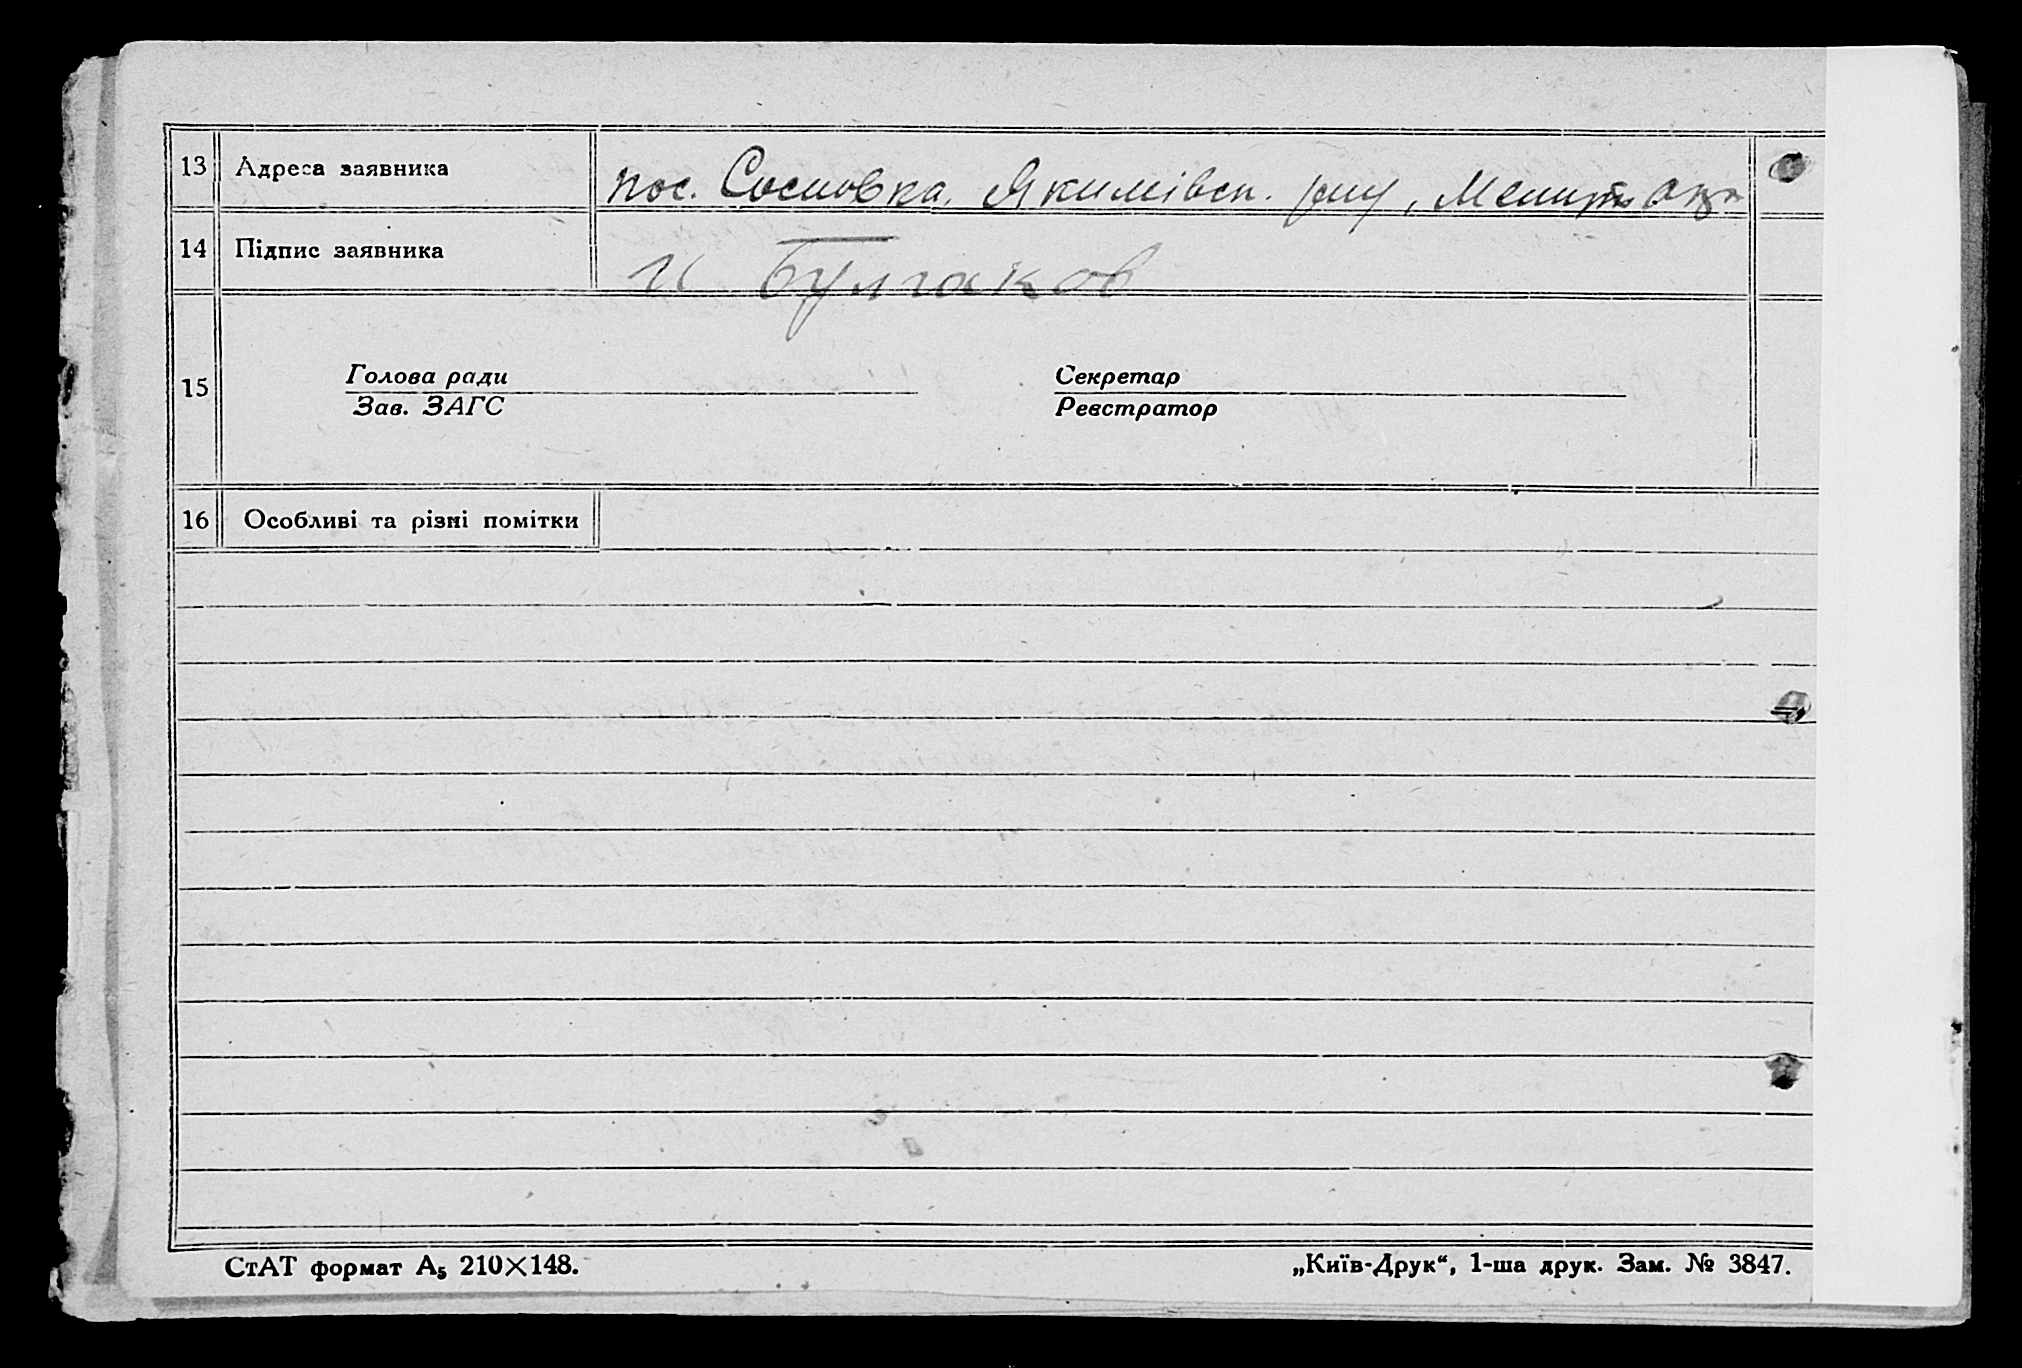 13 Адреса заявника пос. Сосновка. Якимівск. р-ну, Меліт. окр
14 Підпис заявника И Булгаков
Голова ради Секретар
15
Зав. ЗАГС Реєстратор
16 Особливі та різні помітки
СтАТ формат А₅ 210×148. „Київ-Друк“, 1-ша друк. Зам. № 3847.